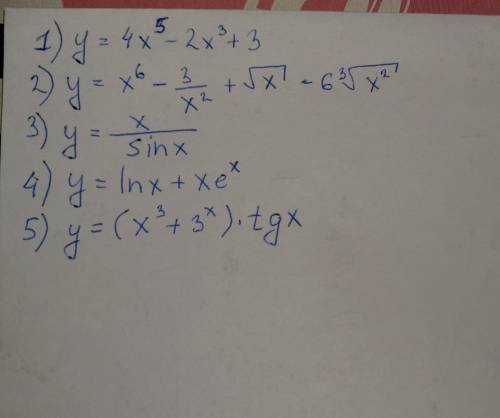 1) y = 4x⁵ - 2x³ + 3
2) y = x⁶ - 3/x² + √x - 6∛x²
3) y = x/sinx
4) y = lnx + xeˣ
5) y = (x³ + 3ˣ) · tgx